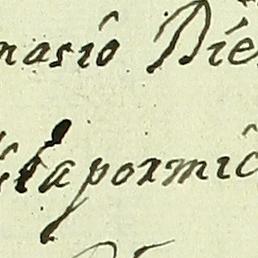 nasió Die
sta pormic